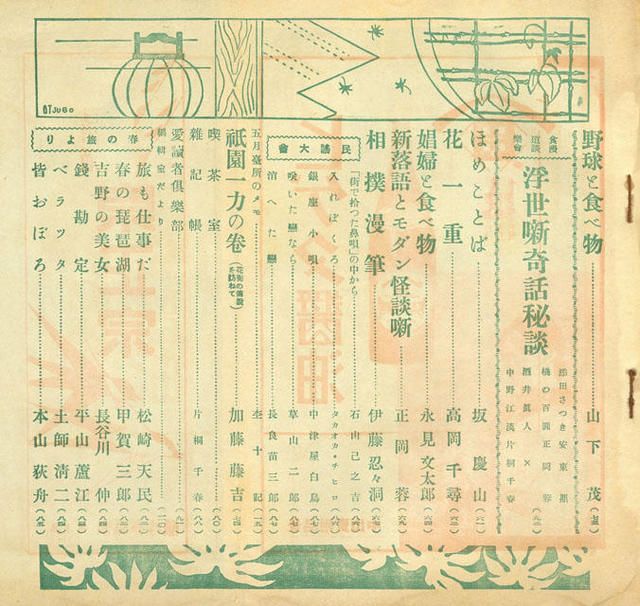 野球と食べ物 山下茂
食道樂 漫談會
浮世噺奇話秘談
添田さつき 安東
橘の百圓 正岡蓉
酒井眞人 ×
中野江漢 片桐千春
ほめことば 坂慶山
花一重 高岡千尋
娼婦と食べ物 永見文太郎
新落語とモダン怪談噺 正岡蓉
相撲漫筆 伊藤忍々洞
民謠大會
「街で拾つた鼻唄」の中から 石山己之吉
入れぼくろ タカオカ・チヒロ
銀座小唄 中津屋白鳥
咲いた戀なら 草山二郎
消へた戀 長良苗三郎
五月臺所のメモ 李十記
祇園一力の卷(花街の傳說を訪ねて) 加藤藤吉
喫茶室
雜記帳 片桐千春
愛讀者俱樂部
編輯室だより
春の旅より
旅も仕事だ 松崎天民
春の琵琶湖 甲賀三郎
吉野の美女 長谷川伸
錢勘定 平山蘆江
ベラツタ 土師淸二
皆おぼろ 本山荻舟
TJUGO